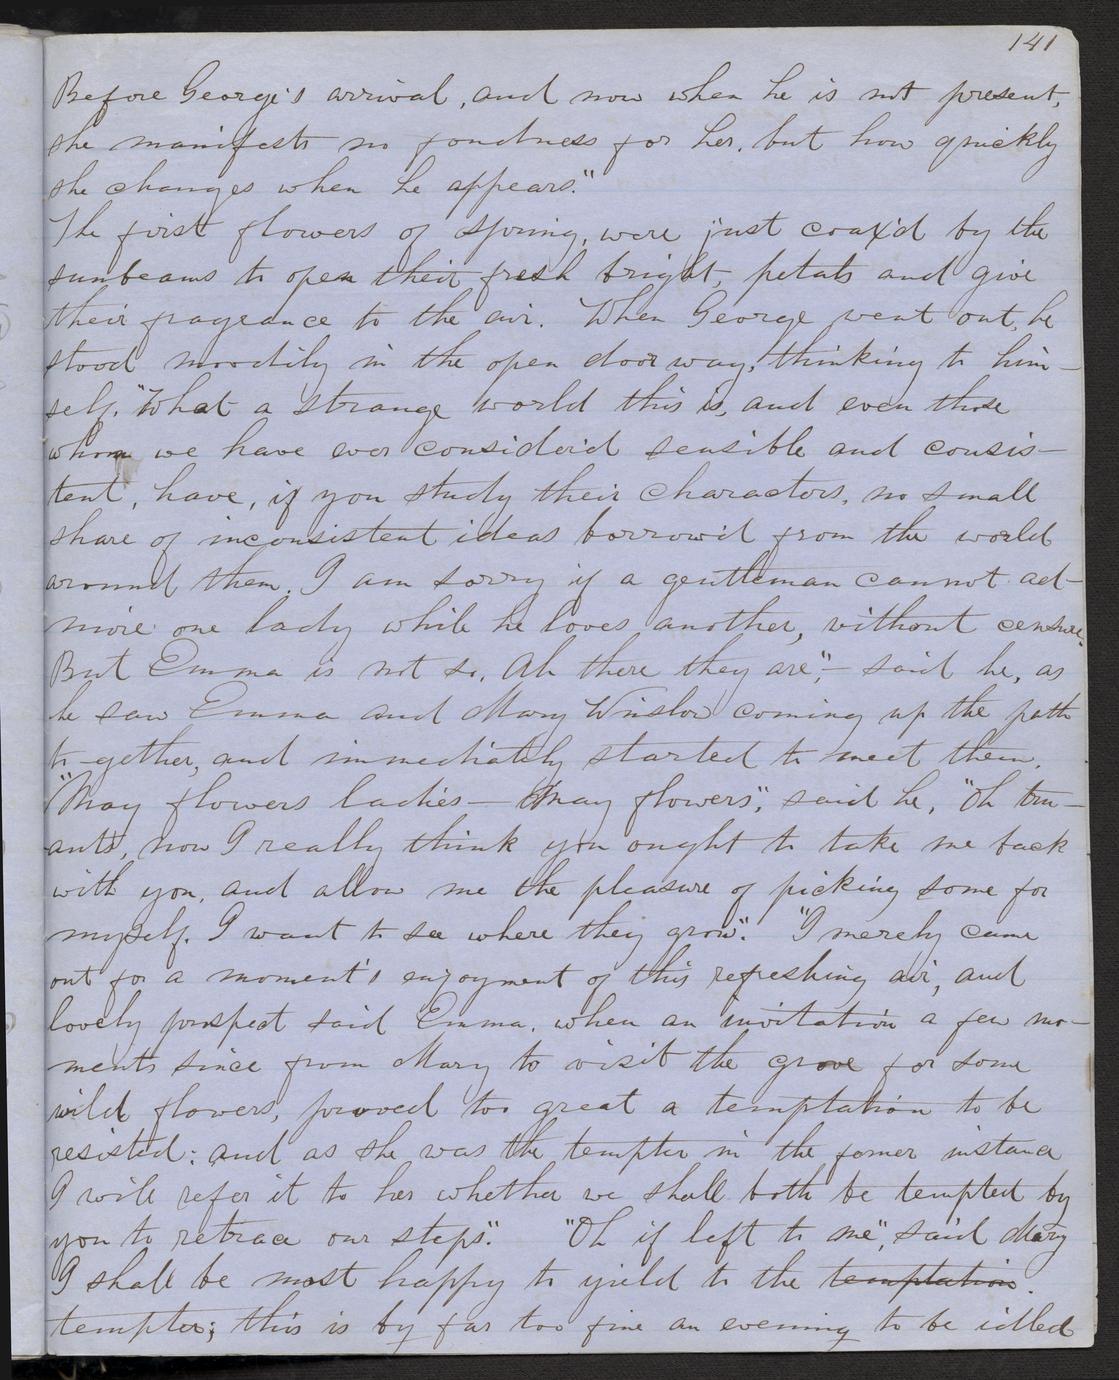 141
Before George's arrival, and now when he is not present,
she manifests no fondness for her, but how quickly
she changes when he appears."
The first flowers of spring, were just coax'd by the
sunbeams to open their fresh bright, petals and give
their fragrance to the air. When George went out, he
stood moodily in the open doorway, thinking to him-
self. "What a strange world this is, and even those
whom we have ever consider'd sensible and consis-
tent, have, if you study their characters, no small
share of inconsistent ideas borrow'd from the world
around them. I am sorry if a gentleman cannot ad-
mire one lady while he loves another, without censure.
But Emma is not so, Ah there they are", - said he, as
he saw Emma and Mary Winslow coming up the path
to-gether, and immediately started to meet them.
"May flowers ladies - May flowers", said he, "Oh tru-
ants, now I really think you ought to take me back
with you, and allow me the pleasure of picking some for
myself. I want to see where they grow". "I merely came
out for a moment's enjoyment of this refreshing air, and
lovely prospect said Emma, when an invitation a few mo-
ments since from Mary to visit the grove for some
wild flowers, prooved too great a temptation to be
resisted: and as she was the tempter in the former instance
I will refer it to her whether we shall both be tempted by
you to retrace our steps". "Oh if left to me", said Mary
I shall be most happy to yield to the temptation.
tempter; this is by far too fine an evening to be idled